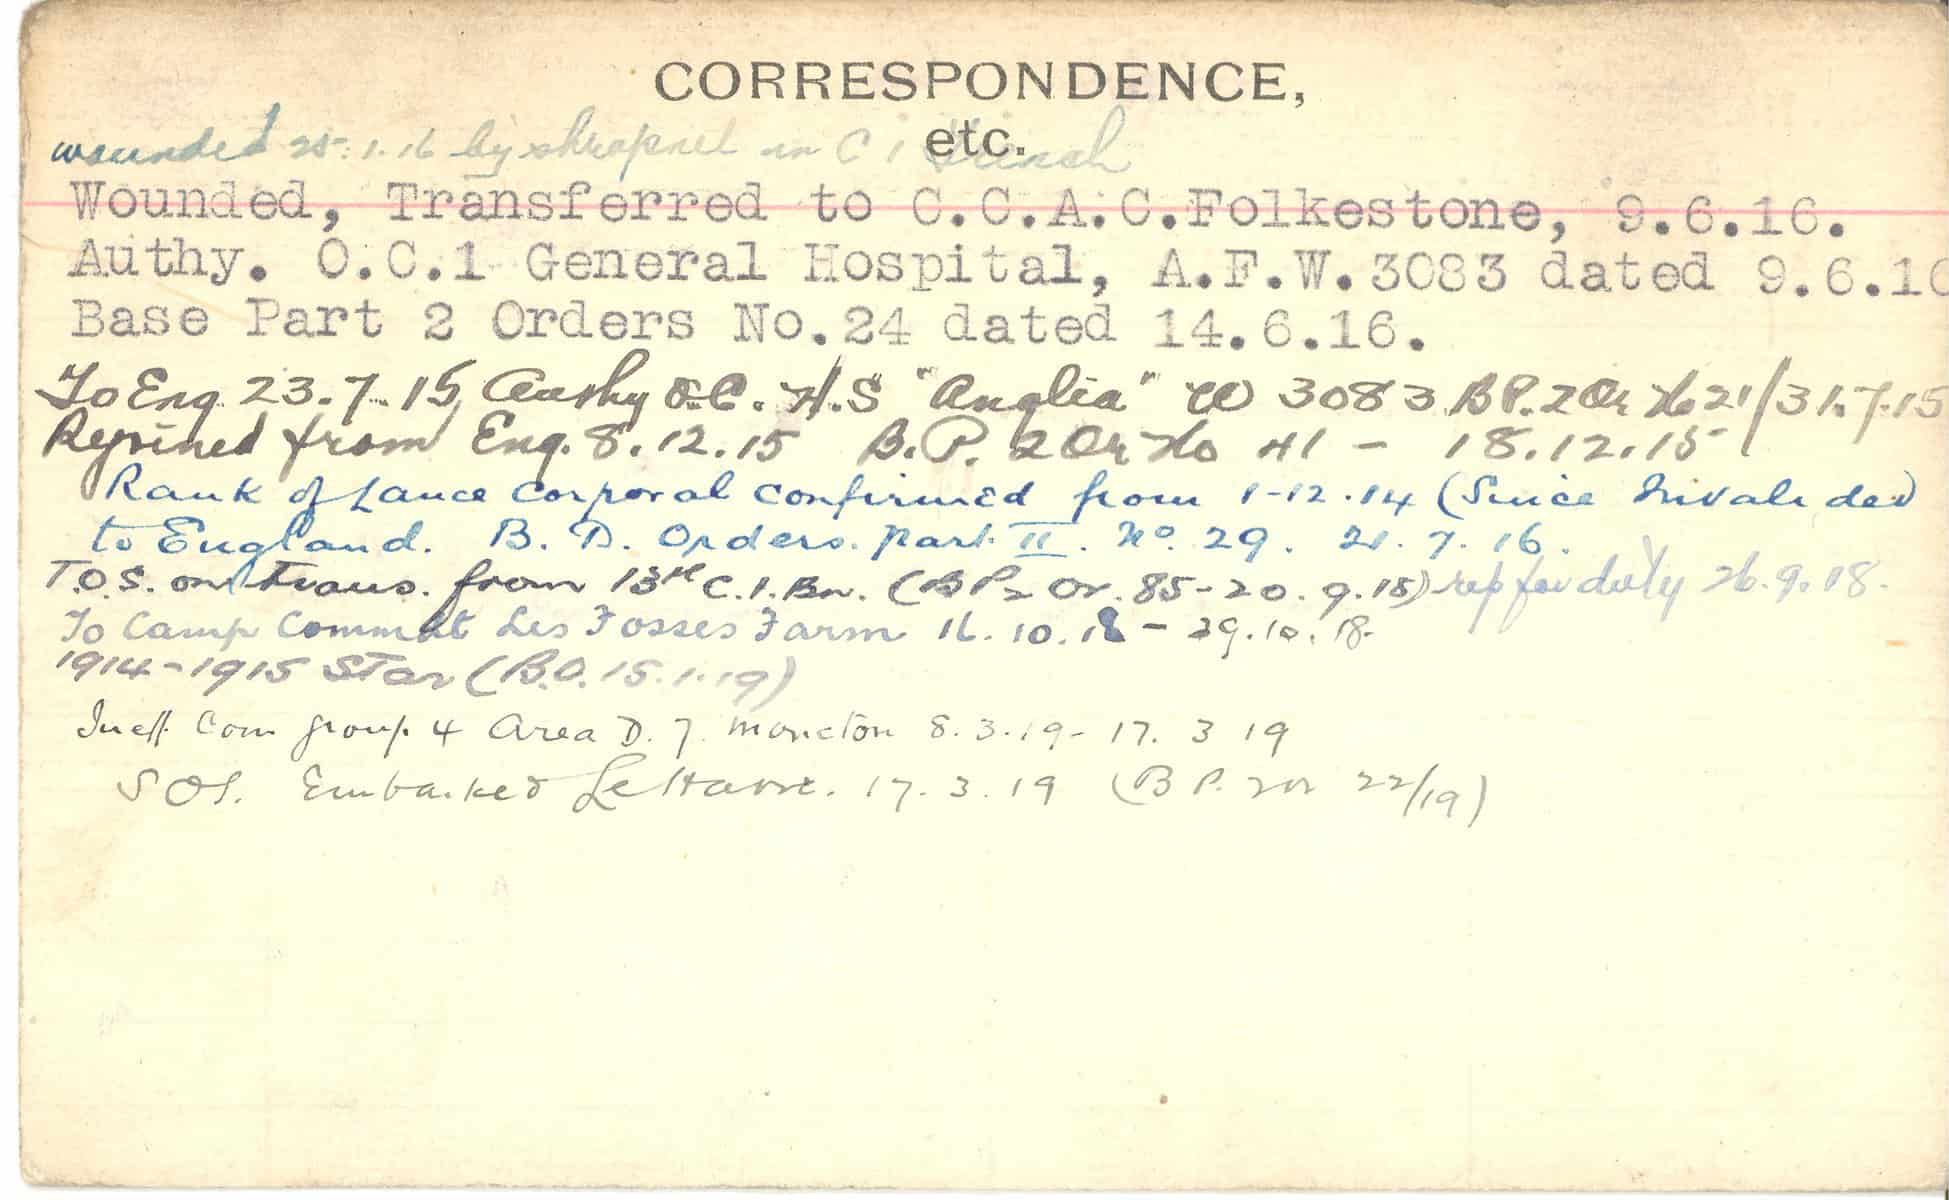 CORRESPONDENCE,
etc.
wounded 25.1.16 by shrapnel in C 1 trench
Wounded, Transferred to C.C.A.C.Folkestone, 9.6.16.
Authy. O.C.1 General Hospital, A.F.W.3083 dated 9.6.16
Base Part 2 Orders No.24 dated 14.6.16.
To Eng 23.7.15 Authy O.C. H.S "Anglia" W 3083 B P. 2 Or No 21/31.7.15
Rejoined from Eng. 8.12.15 B.P. 2 Or No 41 - 18.12.15
Rank of Lance Corporal confirmed from 1-12.14 (Since Invalided
to England. B. D. Orders. part II. No. 29. 21. 7. 16.
T.O.S. on trans. from 13th C.I.Bn. (B P 2 Or. 85-20.9.18) rep for duty 26.9.18.
To Camp Commdt Les Fosses Farm 16.10.18 - 29.10.18.
1914-1915 Star (B.O. 15.1.19)
Ineff. Com group 4 Area D. 7. Moncton 8.3.19 - 17.3 19
S O S. Embarked Le Havre. 17.3.19 (B P. 2 or 22/19)